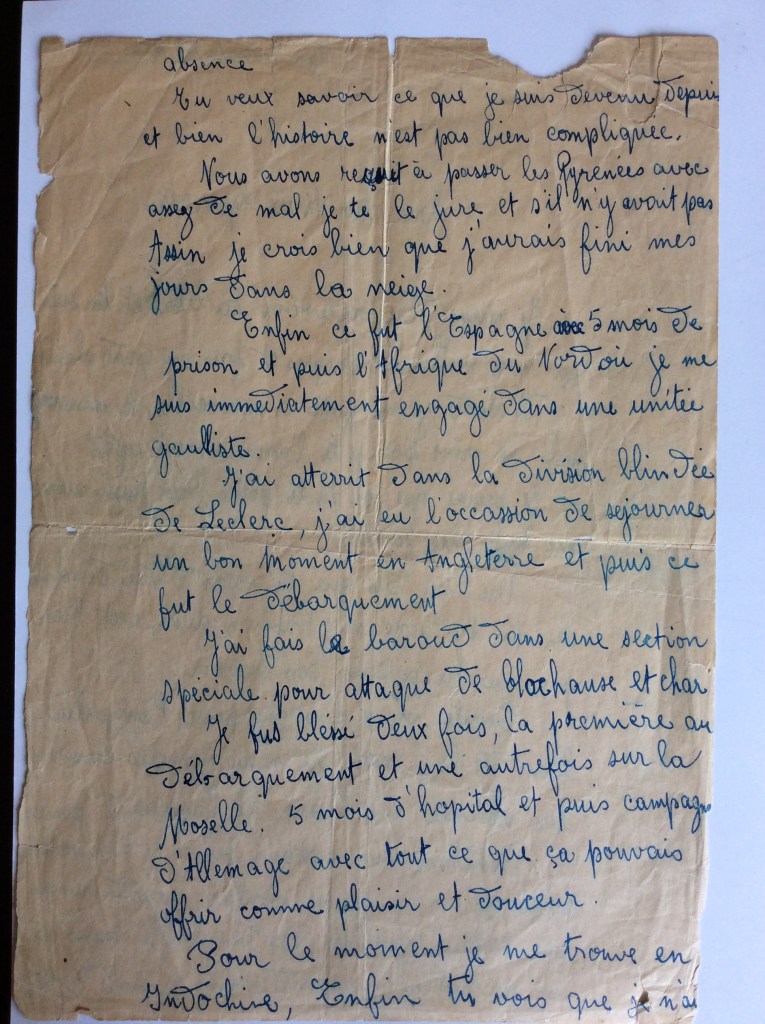 absence
Tu veux savoir ce que je suis devenu depuis
et bien l'histoire n'est pas bien compliquée.
Nous avons reçuit à passer les Pyrenées avec
assez de mal je te le jure et s'il n'y avait pas
Assin je crois bien que j'aurais fini mes
jours dans la neige.
Enfin ce fut l'Espagne 5 mois de
prison et puis l'Afrique du Nord où je me
suis immédiatement engagé dans une unitée
gaulliste.
J'ai atterrit dans la division blindée
de Leclerc, j'ai eu l'occassion de sejourner
un bon moment en Angleterre et puis ce
fut le débarquement
J'ai fais le baroud dans une section
spéciale pour attaque de blochause et char
Je fus bléssé deux fois, la première au
débarquement et une autrefois sur la
Moselle. 5 mois d'hopital et puis campagne
d'Allemage avec tout ce que ça pouvais
offrir comme plaisir et douceur.
Pour le moment je me trouve en
Indochine, Enfin tu vois que je n'ai